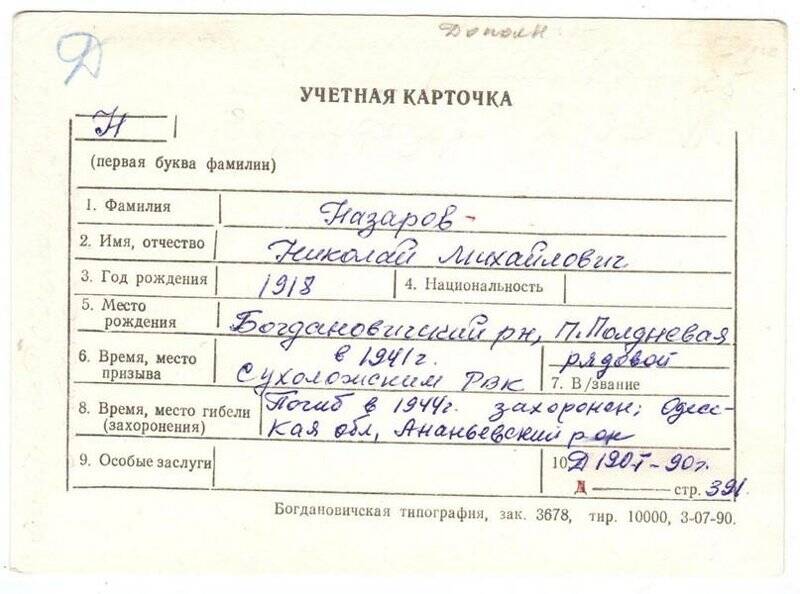 Дополн
Д
УЧЕТНАЯ КАРТОЧКА
Н
(первая буква фамилии)
1. Фамилия Назаров-
2. Имя, отчество Николай Михайлович
3. Год рождения 1918 4. Национальность
5. Место рождения Богдановичский рн, п. Полдневая
6. Время, место призыва в 1941г. Сухоложским РВК
рядовой
7. В/звание
8. Время, место гибели (захоронения) Погиб в 1944г. захоронен; Одес-
кая обл, Ананьевский рон
9. Особые заслуги
10. Д 190т-90г.
Д стр. 391.
Богдановичская типография, зак. 3678, тир. 10000, 3-07-90.